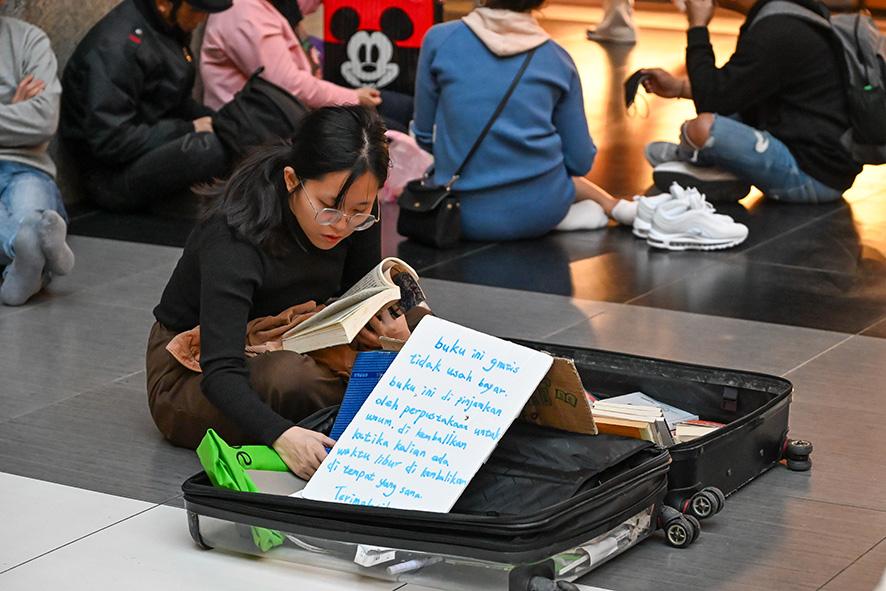 buku ini gratis
tidak usah bayar.
buku, ini di pinjamkan
oleh perpustakaan untuk
umum, di kembalikan
katika kalian ada
waktu libur di kembalikan
di tempat yang sama.